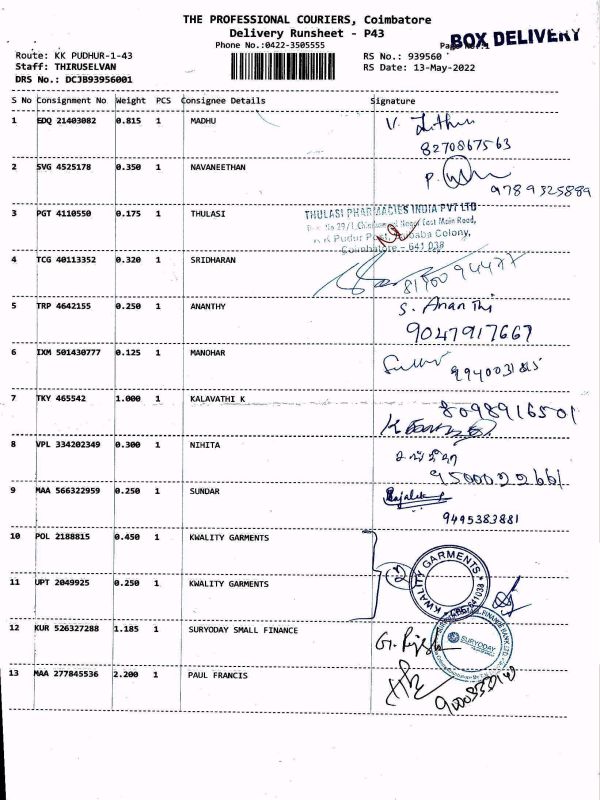 THE PROFESSIONAL COURIERS, Coimbatore
Delivery Runsheet - P43
Phone No.:0422-3505555
BOX DELIVERY
Route: KK PUDHUR-1-43
RS No.: 939560
Staff: THIRUSELVAN
RS Date: 13-May-2022
DRS No.: DCJB93956001
S No Consignment No Weight PCS Consignee Details Signature
1 EDQ 21403082 0.815 1 MADHU
8270867563
2 SVG 4525178 0.350 1 NAVANEETHAN
9789325889
3 PGT 4110550 0.175 1 THULASI
THULASI PHARMACIES INDIA PVT LTD
East Main Road,
K K Pudur Post, Saibaba Colony,
Coimbatore - 641 038
4 TCG 40113352 0.320 1 SRIDHARAN
8190094477
5 TRP 4642155 0.250 1 ANANTHY
S. Ananthi
9047917667
6 IXM 501430777 0.125 1 MANOHAR
9940031815
7 TKY 465542 1.000 1 KALAVATHI K
8098916501
8 VPL 334202349 0.300 1 NIHITA
9500022661
9 MAA 566322959 0.250 1 SUNDAR
9495383881
10 POL 2188815 0.450 1 KWALITY GARMENTS
KWALITY GARMENTS
11 UPT 2049925 0.250 1 KWALITY GARMENTS
12 KUR 526327288 1.185 1 SURYODAY SMALL FINANCE
SURYODAY
13 MAA 277845536 2.200 1 PAUL FRANCIS